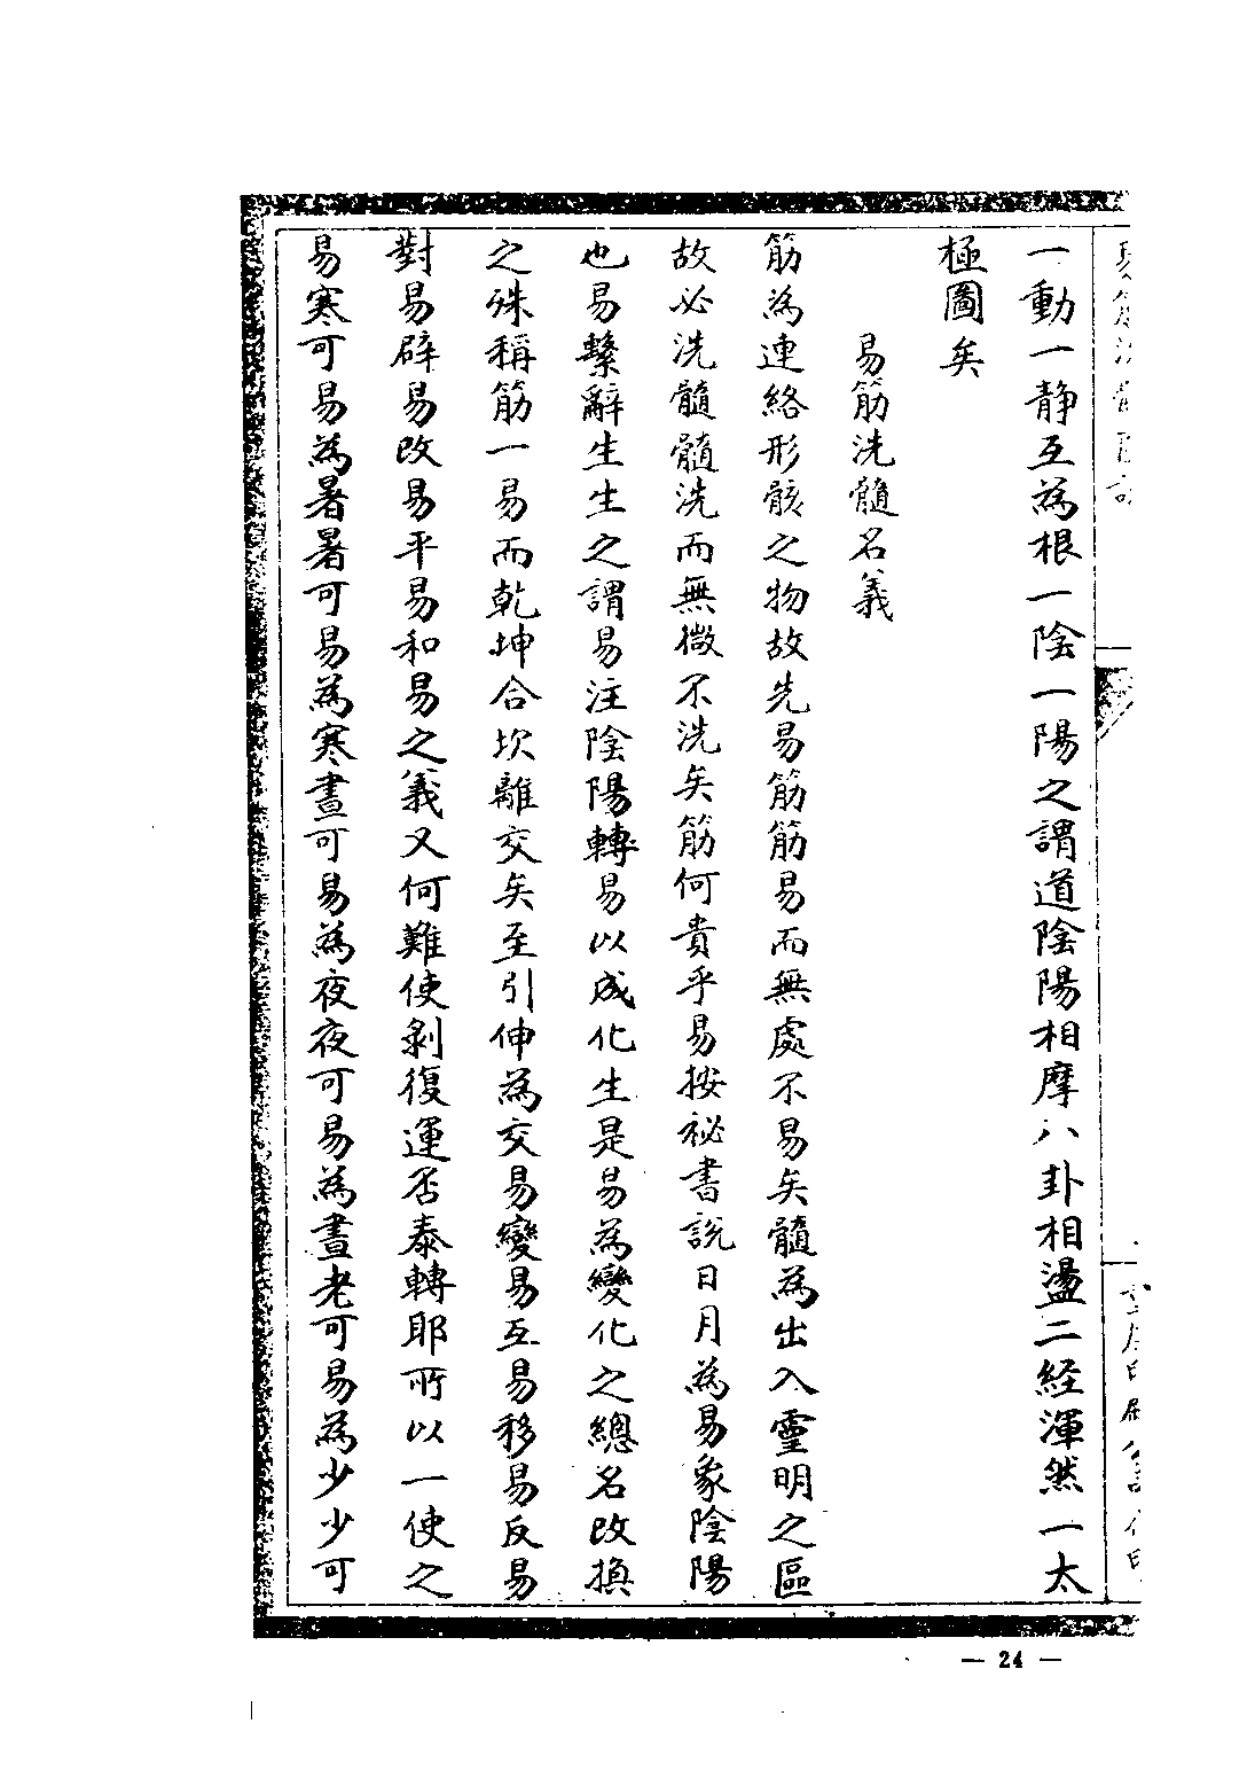 一動一静互為根一陰一陽之謂道陰陽相摩八卦相盪二経渾然一太
極圖矣
易筋洗髓名義
筋為連絡形骸之物故先易筋筋易而無處不易矣髓為出入靈明之區
故必洗髓髓洗而無微不洗矣筋何貴乎易按祕書説日月為易象陰陽
也易繫辭生生之謂易注陰陽轉易以成化生是易為變化之總名改換
之殊稱筋一易而乾坤合坎離交矣至引伸為交易變易互易移易反易
對易辟易改易平易和易之義又何難使剝復運否泰轉耶所以一使之
易寒可易為暑暑可易為寒晝可易為夜夜可易為晝老可易為少少可
— 24 —